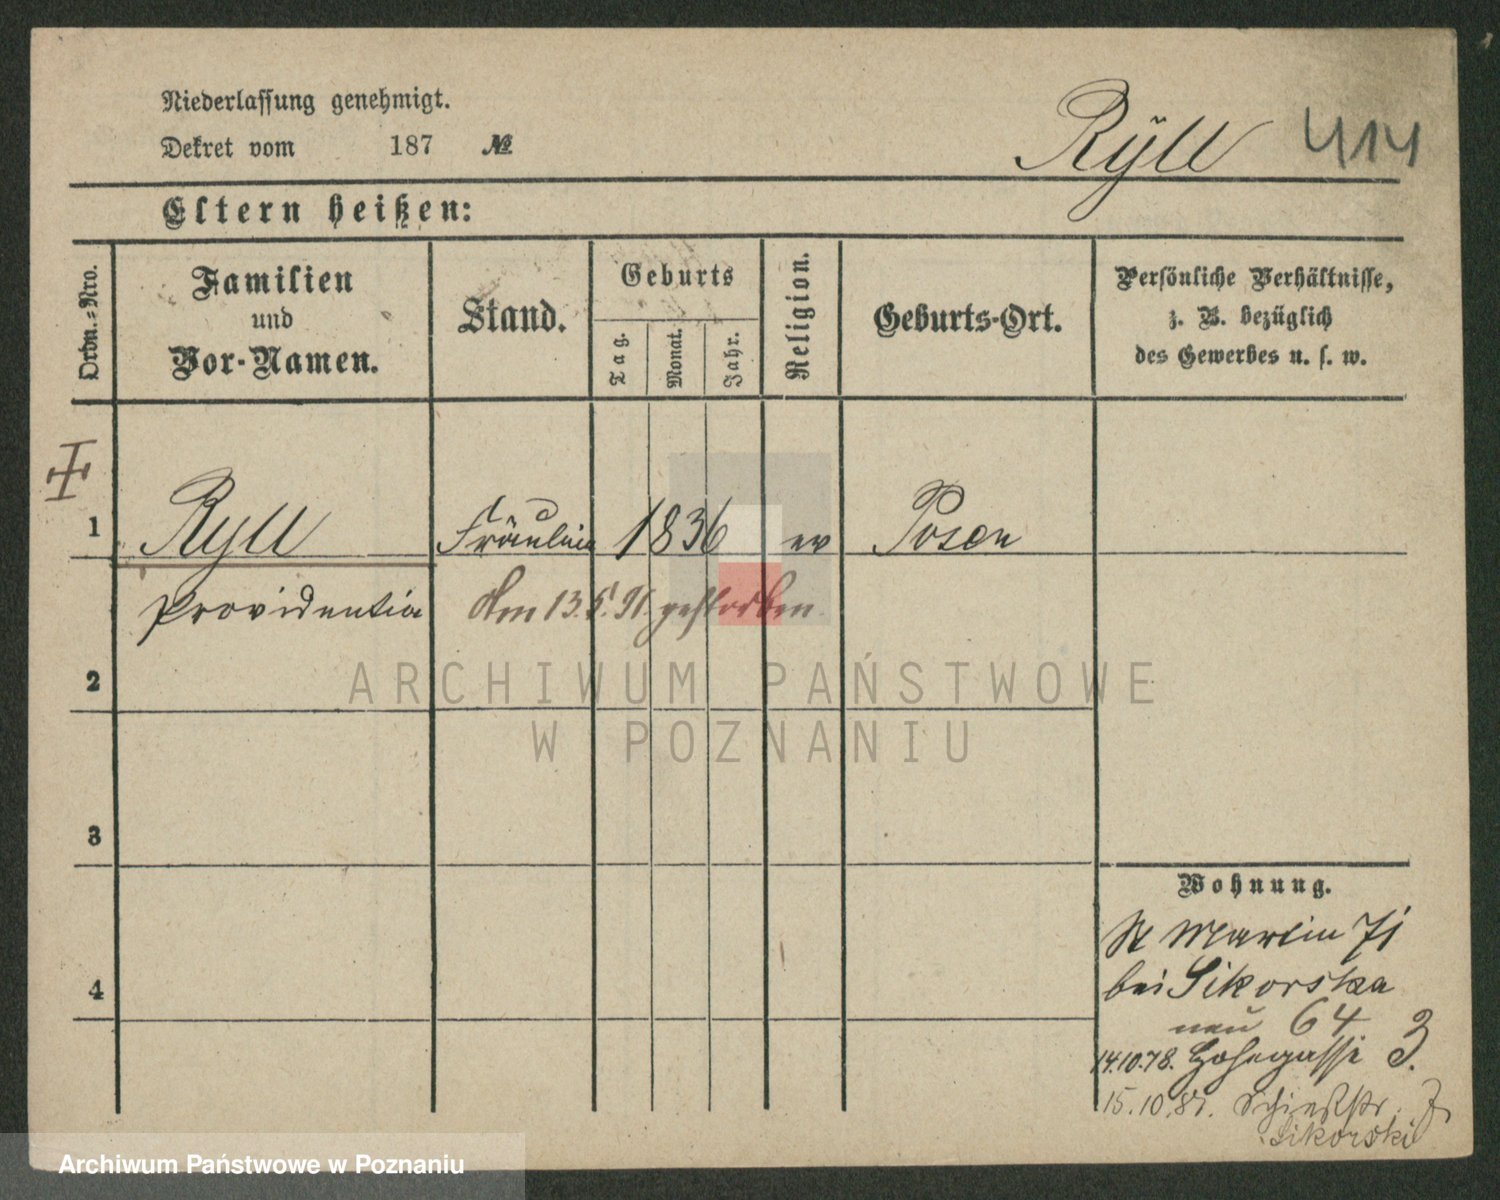 Niederlassung genehmigt.
Dekret vom 187 №
Rÿll 414
Eltern heißen:
Ordn.-Nro.
Familien
und
Vor-Namen.
Stand.
Geburts
Tag.
Monat.
Jahr.
Religion.
Geburts-Ort.
Persönliche Verhältnisse,
z. B. bezüglich
des Gewerbes u. s. w.
1 Ryll Fräulein 1836 ev Posen
Providentia Am 13. 5. 91. gestorben.
2
ARCHIWUM PAŃSTWOWE
W POZNANIU
3
Wohnung.
St Martin 71
bei Sikorska
neu 64
4
14.10.78. Hohegasse 3.
15.10. Schießstr. 7
Sikorski
Archiwum Państwowe w Poznaniu